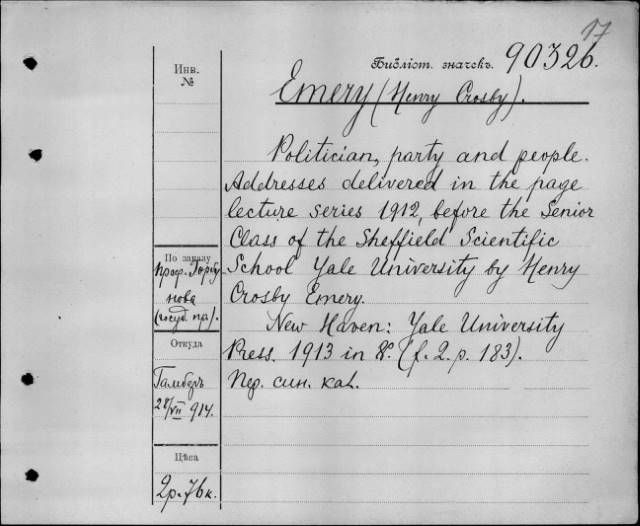 17
Библіот. значекъ. 90326.
Инв.
№
Emery (Henry Crosby).
Politician, party and people.
Addresses delivered in the page
lecture series 1912, before the Senior
Class of the Sheffield Scientific
School Yale University by Henry
Crosby Emery.
New Haven: Yale University
Press. 1913 in 8º. (f. 2. p. 183).
Пер. син. кал.
По заказу
проф. Горбу-
нова
(госуд пр).
Откуда
Гамберъ
28/VII 914.
Цѣна
2р. 76к.